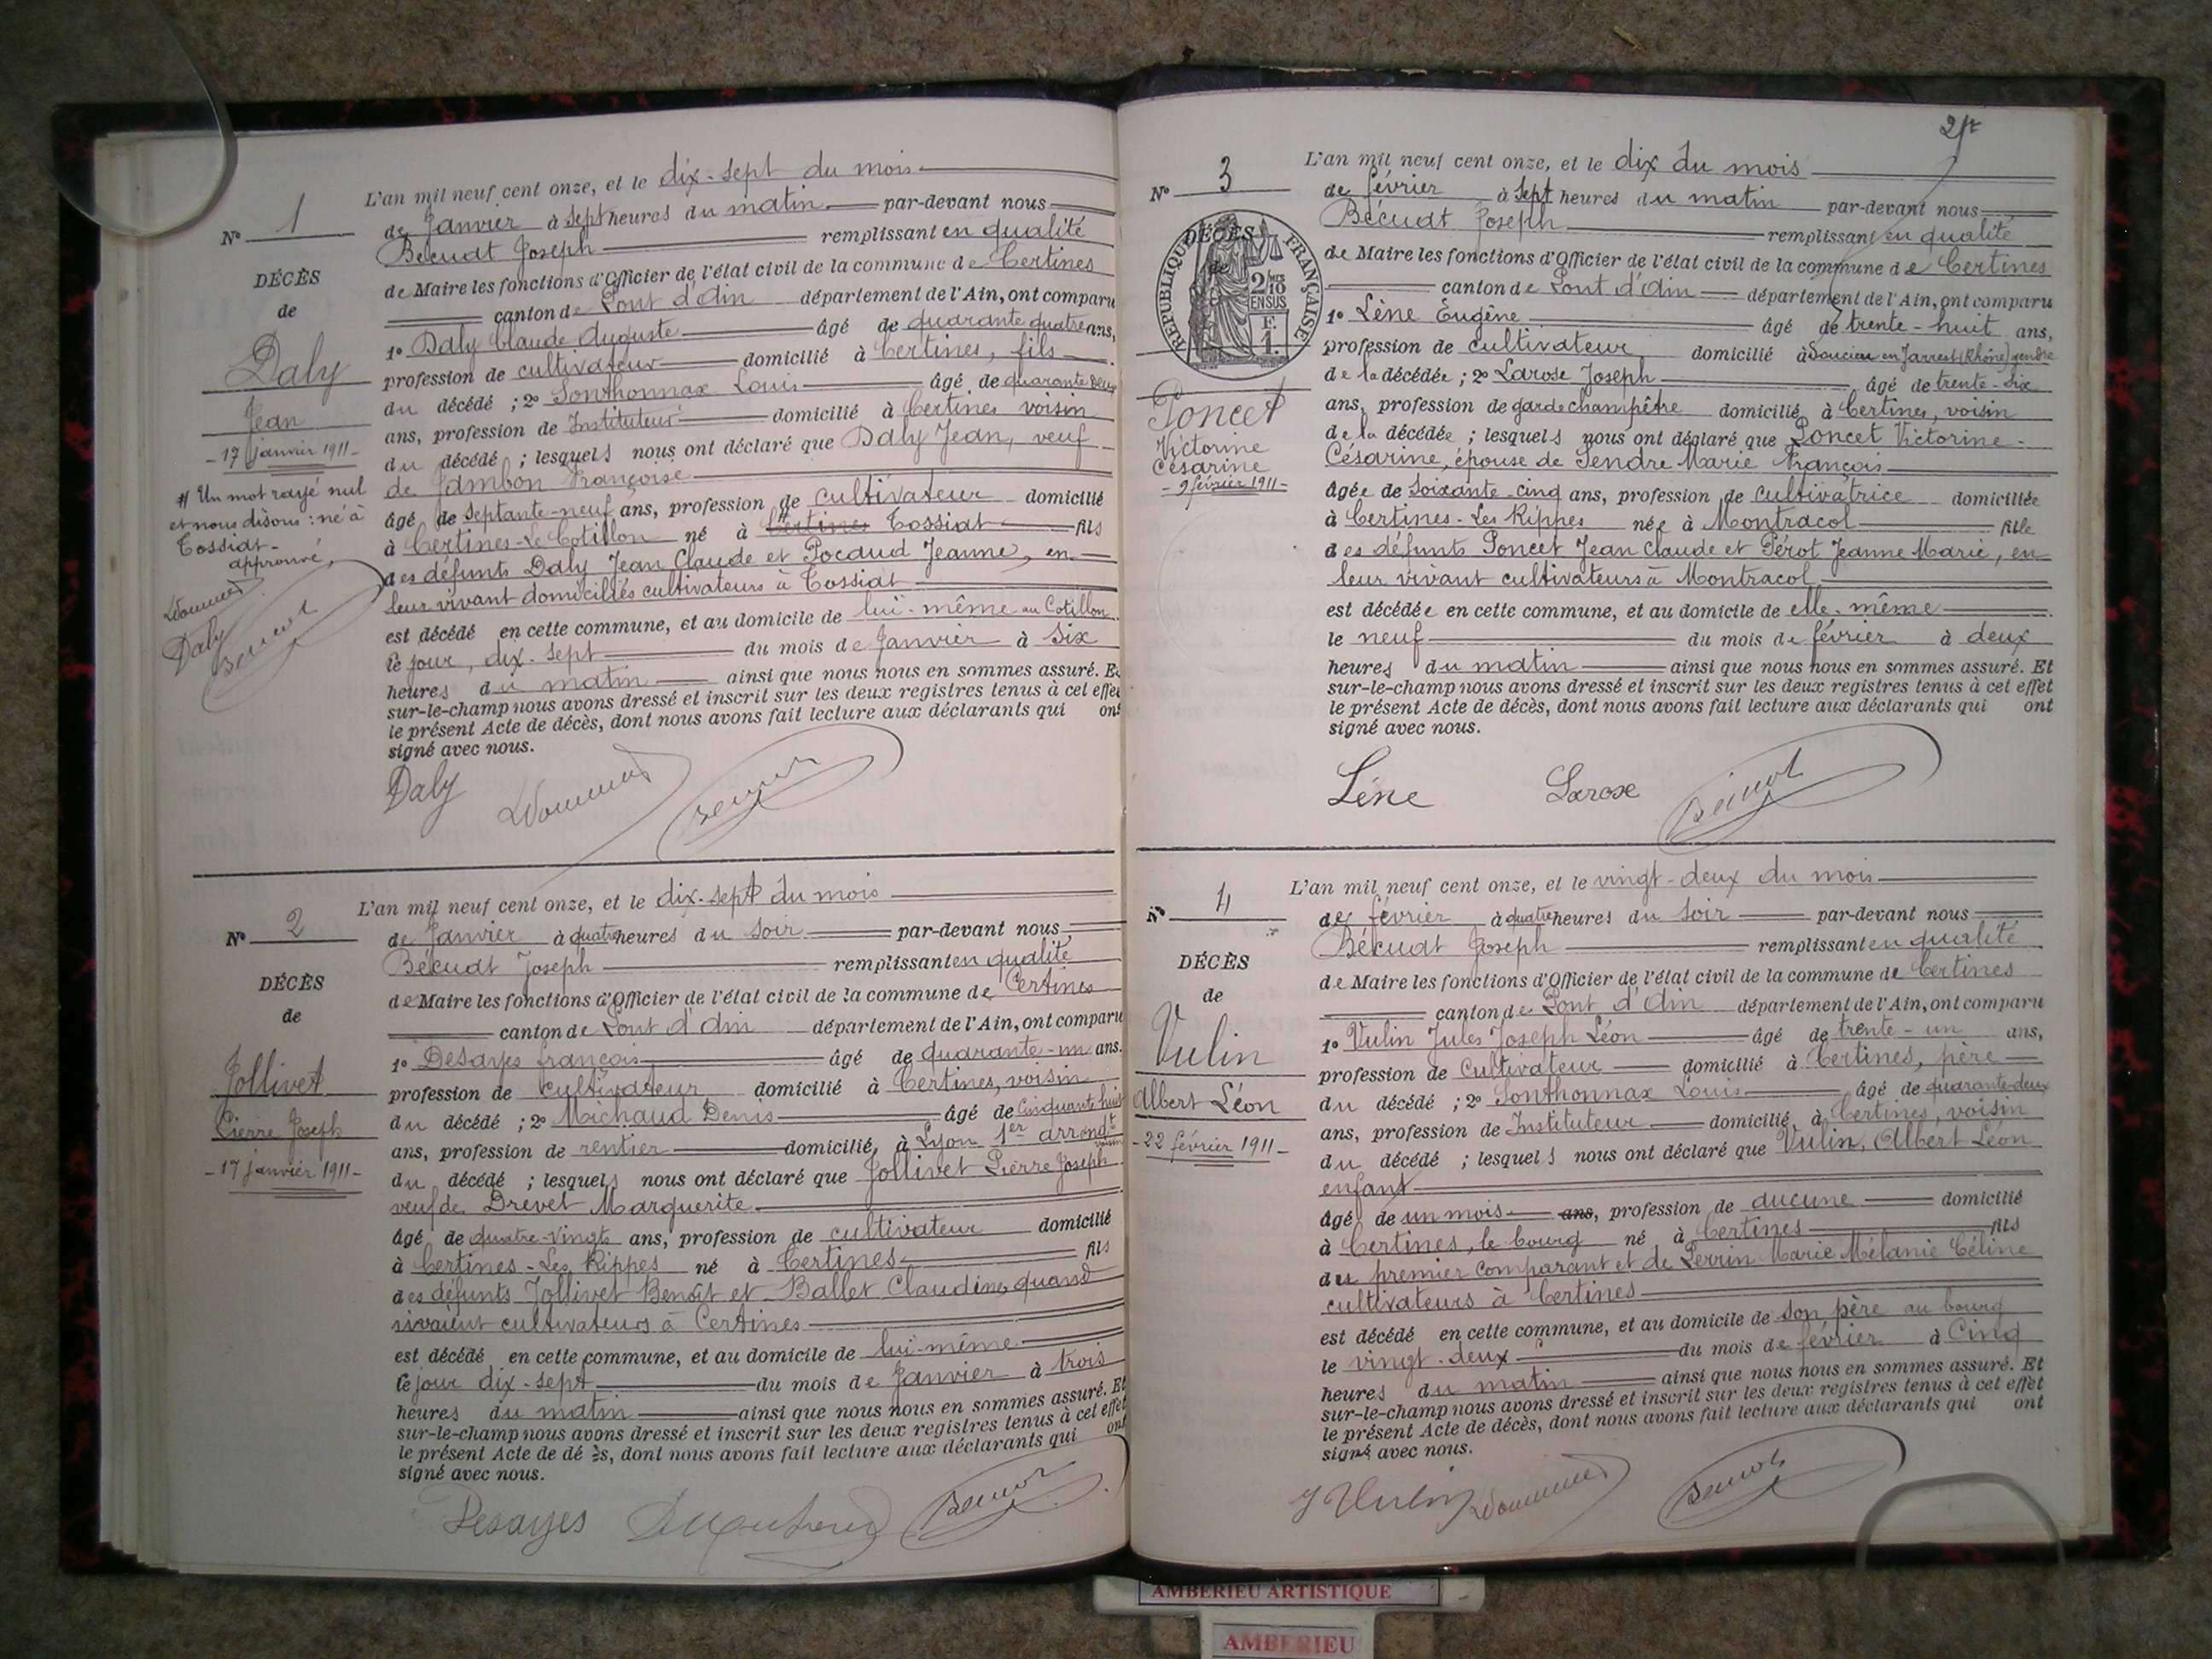 N° 1
DÉCÈS
de
Daly
Jean
- 17 janvier 1911 -
# Un mot rayé nul
et nous disons : né à
Tossiat -
approuvé,
Daly
L'an mil neuf cent onze, et le dix-sept du mois
de Janvier à sept heures du matin par-devant nous
Bécudt Joseph remplissant en qualité
de Maire les fonctions d'Officier de l'état civil de la commune de Certines
canton de Pont d'Ain département de l'Ain, ont comparu
1° Daly Claude Auguste âgé de quarante quatre ans,
profession de cultivateur domicilié à Certines, fils
du décédé ; 2° Sonthonnax Louis âgé de quarante deux
ans, profession de Instituteur domicilié à Certines voisin
du décédé ; lesquels nous ont déclaré que Daly Jean, veuf
de Jambon Françoise
âgé de septante-neuf ans, profession de cultivateur domicilié
à Certines-Le Cotillon né à Certines Tossiat fils
des défunts Daly Jean Claude et Pocaud Jeanne, en
leur vivant domiciliés cultivateurs à Tossiat
est décédé en cette commune, et au domicile de lui-même au Cotillon
le jour, dix-sept du mois de Janvier à six
heures du matin ainsi que nous nous en sommes assuré. Et
sur-le-champ nous avons dressé et inscrit sur les deux registres tenus à cet effet
le présent Acte de décès, dont nous avons fait lecture aux déclarants qui ont
signé avec nous.
Daly
N° 2
DÉCÈS
de
Jollivet
Pierre Joseph
- 17 janvier 1911 -
L'an mil neuf cent onze, et le dix-sept du mois
de Janvier à quatre heures du soir par-devant nous
Bécudt Joseph remplissant en qualité
de Maire les fonctions d'Officier de l'état civil de la commune de Certines
canton de Pont d'Ain département de l'Ain, ont comparu
1° Desayes François âgé de quarante-un ans.
profession de cultivateur domicilié à Certines, voisin
du décédé ; 2° Michaud Denis âgé de cinquante huit
ans, profession de rentier domicilié, à Lyon 1er arrondt voisin
du décédé ; lesquels nous ont déclaré que Jollivet Pierre Joseph
veuf de Drevet Marguerite
âgé de quatre-vingts ans, profession de cultivateur domicilié
à Certines-Les Rippes né à Certines fils
des défunts Jollivet Benoît et Ballet Claudine, quand
vivaient cultivateurs à Certines
est décédé en cette commune, et au domicile de lui-même
le jour dix-sept du mois de Janvier à trois
heures du matin ainsi que nous nous en sommes assuré. Et
sur-le-champ nous avons dressé et inscrit sur les deux registres tenus à cet effet
le présent Acte de dé ès, dont nous avons fait lecture aux déclarants qui ont
signé avec nous.
Desayes
N° 3
RÉPUBLIQUE FRANÇAISE
DÉCÈS
de
2/10 EN SUS
F. 1.
Poncet
Victorine
Césarine
- 9 février 1911 -
L'an mil neuf cent onze, et le dix du mois
de février à sept heures du matin par-devant nous
Bécudt Joseph remplissant en qualité
de Maire les fonctions d'Officier de l'état civil de la commune de Certines
canton de Pont d'Ain département de l'Ain, ont comparu
1° Lène Eugène âgé de trente-huit ans,
profession de cultivateur domicilié à Soucieu en Jarrest (Rhône) gendre
de la décédée ; 2° Larose Joseph âgé de trente-six
ans, profession de garde champêtre domicilié, à Certines, voisin
de la décédée ; lesquels nous ont déclaré que Poncet Victorine
Césarine, épouse de Tendre Marie François
âgée de soixante-cinq ans, profession de cultivatrice domiciliée
à Certines-Les Rippes née à Montracol fille
des défunts Poncet Jean Claude et Pérot Jeanne Marie, en
leur vivant cultivateurs à Montracol
est décédée en cette commune, et au domicile de elle-même
le neuf du mois de février à deux
heures du matin ainsi que nous nous en sommes assuré. Et
sur-le-champ nous avons dressé et inscrit sur les deux registres tenus à cet effet
le présent Acte de décès, dont nous avons fait lecture aux déclarants qui ont
signé avec nous.
Lène Larose
N° 4
DÉCÈS
de
Vulin
Albert Léon
- 22 février 1911 -
L'an mil neuf cent onze, et le vingt-deux du mois
de février à quatre heures du soir par-devant nous
Bécudt Joseph remplissant en qualité
de Maire les fonctions d'Officier de l'état civil de la commune de Certines
canton de Pont d'Ain département de l'Ain, ont comparu
1° Vulin Jules Joseph Léon âgé de trente-un ans,
profession de Cultivateur domicilié à Certines, père
du décédé ; 2° Sonthonnax Louis âgé de quarante-deux
ans, profession de Instituteur domicilié, à Certines, voisin
du décédé ; lesquels nous ont déclaré que Vulin, Albert Léon
enfant
âgé de un mois ans, profession de aucune domicilié
à Certines, le bourg né à Certines fils
du premier comparant et de Perrin Marie Mélanie Céline
cultivateurs à Certines
est décédé en cette commune, et au domicile de son père au bourg
le vingt-deux du mois de février à cinq
heures du matin ainsi que nous nous en sommes assuré. Et
sur-le-champ nous avons dressé et inscrit sur les deux registres tenus à cet effet
le présent Acte de décès, dont nous avons fait lecture aux déclarants qui ont
signé avec nous.
J Vulin
AMBERIEU ARTISTIQUE
AMBERIEU